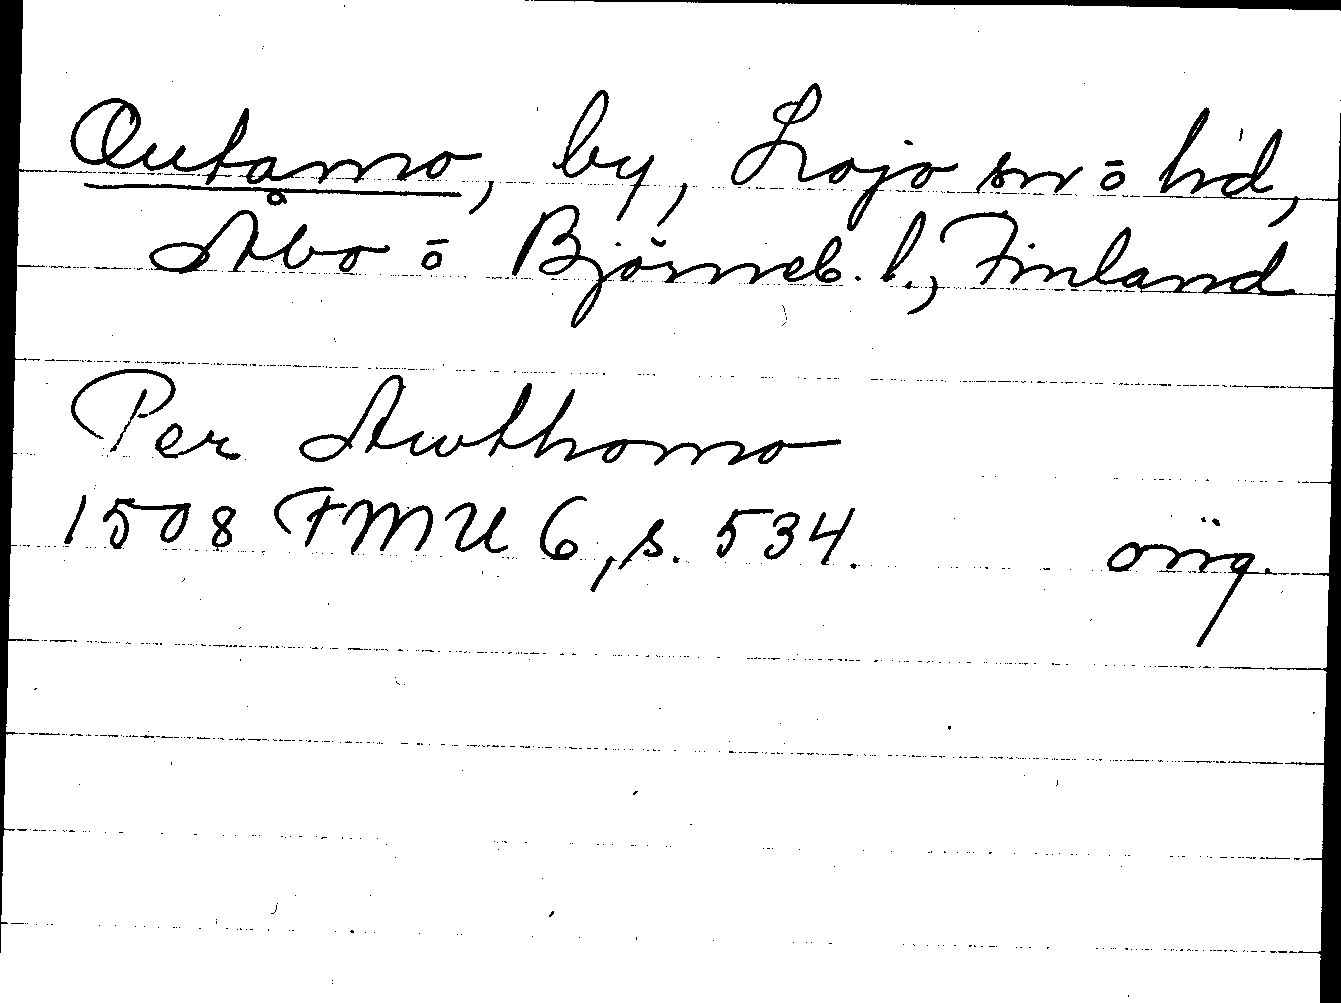 Outamo, by, Lojo sn o hd,
Åbo o Björneb. l., Finland
Per Awthomo
1508 FMU 6, s. 534. orig.